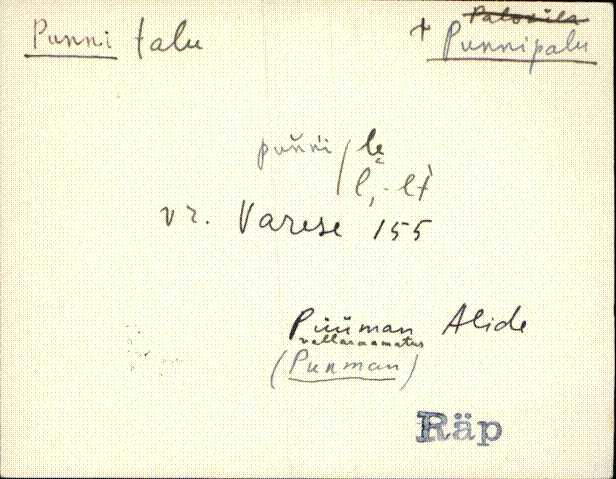 Punni talu
Palovila
+ Punnipalu
puňńi / le
l, -lt
vr. Varese 155
Püüman Alide
vallaraamatus
(Punman)
Räp